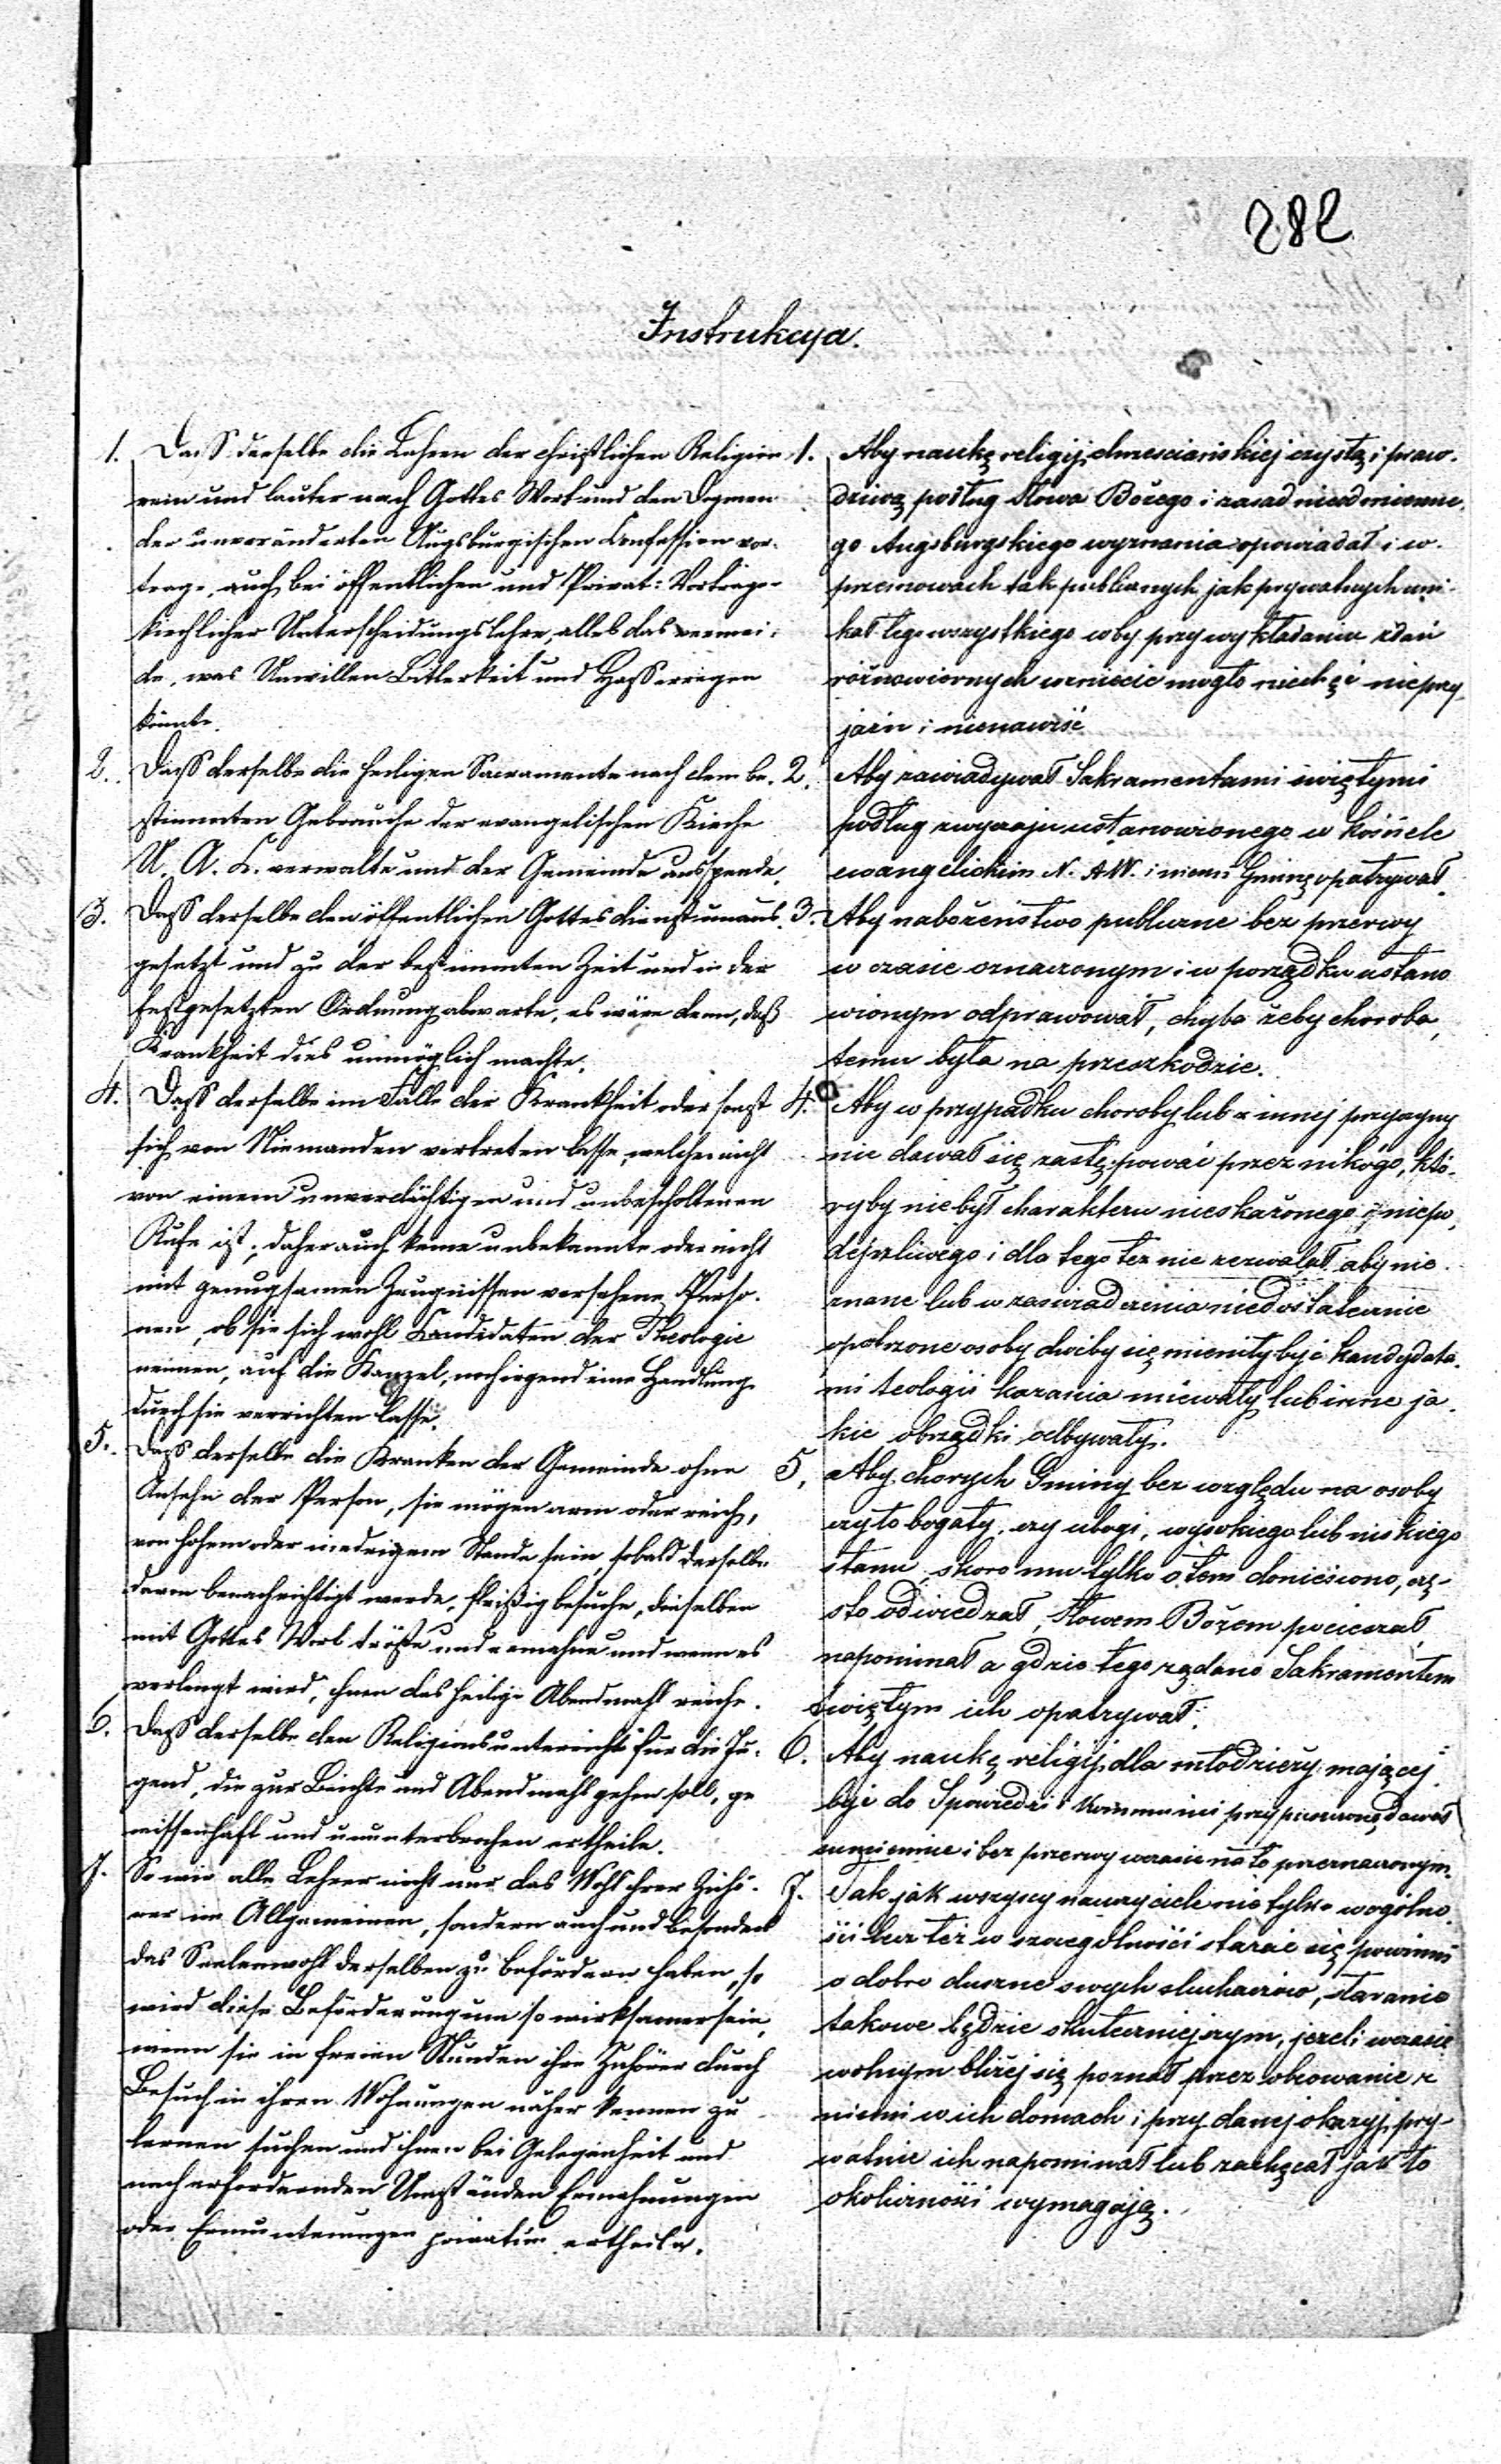 282
Instrukcya.
1. Dass derselbe die Lehren der christlichen Religion
rein und lauter nach Gottes Wort und den Dogmen
der unveränderten Augsburgischen Confession vor-
trage, auch bei öffentlichen und Privat-Vorträgen
kirchlicher Unterscheidungslehre alles das vermei-
de, was Unwillen Bitterkeit und Hass erregen
könnte.
2. Dass derselbe die heiligen Sacramente nach dem be-
stimmten Gebrauche der evangelischen Kirche
U. A. C. verwalte und der Gemeinde ausspende.
3. Dass derselbe den öffentlichen Gottesdienst unaus-
gesetzt und zu der bestimmten Zeit und in der
festgesetzten Ordnung abwarte, es wäre denn, daß
Krankheit dies unmöglich machte.
4. Dass derselbe im Falle der Krankheit oder sonst
sich von Niemanden vertreten lasse, welcher nicht
von einem unverdächtigen und unbescholtenen
Rufe ist; daher auch keine unbekannte oder nicht
mit genugsamen Zeugnissen versehene Perso-
nen, ob sie sich wohl Candidaten der Theologie
nennen, auf die Kanzel, noch irgend eine Handlung
durch sie verrichten lasse.
5. Dass derselbe die Kranken der Gemeinde ohne
Ansehn der Person, sie mögen arm oder reich,
von hohem oder niedrigem Stande sein, sobald derselbe
davon benachrichtigt werde, fleißig besuche, dieselben
mit Gottes Wort tröste und ermahne und wenn es
verlangt wird, ihnen das heilige Abendmahl reiche.
6. Dass derselbe den Religionsunterricht für die Ju-
gend, die zur Beichte und Abendmahl gehen soll, ge
wissenhaft und ununterbrochen ertheile.
7. So wie alle Lehrer nicht nur das Wohl ihrer Zuhö-
rer im Allgemeinen, sondern auch und besonders
das Seelenwohl derselben zu befördern haben, so
wird diese Beförderung um so wirksamer sein,
wenn sie in freien Stunden ihre Zuhörer durch
Besuch in ihren Wohnungen näher kennen zu
lernen suchen und ihnen bei Gelegenheit und
nach erfordernden Umständen Ermahnungen
oder Ermunterungen privatim ertheilen.
1. Aby naukę religij chrzesciańskiej czystą i praw-
dziwą podług Słowa Bożego i zasad nieodmienne-
go Augsburgskiego wyznania opowiadał i w
przemowach tak publicznych jak prywatnych uni-
kał tego wszystkiego coby przy wykładaniu zdań
różnowiernych wzniecić mogło niechęć nieprzy-
jaźń i nienawiść
2. Aby zawiadywał Sakramentami świętymi
podług zwyczaju ustanowionego w kościele
ewangelickim N. A W. i niemi Gminę opatrywał.
3. Aby nabożeństwo publiczne bez przerwy
w czasie oznaczonym i w porządku ustano
wionym odprawował, chyba żeby choroba,
temu była na przeszkodzie.
4. Aby w przypadku choroby lub z innej przyczyny
nie dawał się zastępować przez nikogo, któ-
ryby nie był charakteru nieskażonego i niepo-
dejrzliwego i dla tego też nie zezwalał aby nie
znane lub w zaświadczenia niedostatecznie
opatrzone osoby choćby się mieniły być kandydata-
mi teologii kazania miewały lub inne ja-
kie obrządki odbywały.
5. Aby chorych Gminy bez względu na osoby
czy to bogaty, czy ubogi, wysokiego lub niskiego
stanu skoro mu tylko o tem doniesiono, czę-
sto odwiedzał, Słowem Bożem pocieszał,
napominał a gdzie tego żądano Sakramentem
świętym ich opatrywał.
6. Aby naukę religij dla młodzieży mającej
być do Spowiedzi i Kommunii przypuszczoną dawał
sumiennie i bez przerwy w czasie na to przeznaczonym.
7. Tak jak wszyscy nauczyciele nie tylko w ogólno-
ści lecz też w szczególności starać się powinni
o dobro duszne swych słuchaczów, staranie
takowe będzie skuteczniejszym, jeżeli w czasie
wolnym bliżej się poznał przez obcowanie z
niemi w ich domach i przy danej okazyi pry-
watnie ich napominał lub zachęcał jak to
okoliczności wymagają.